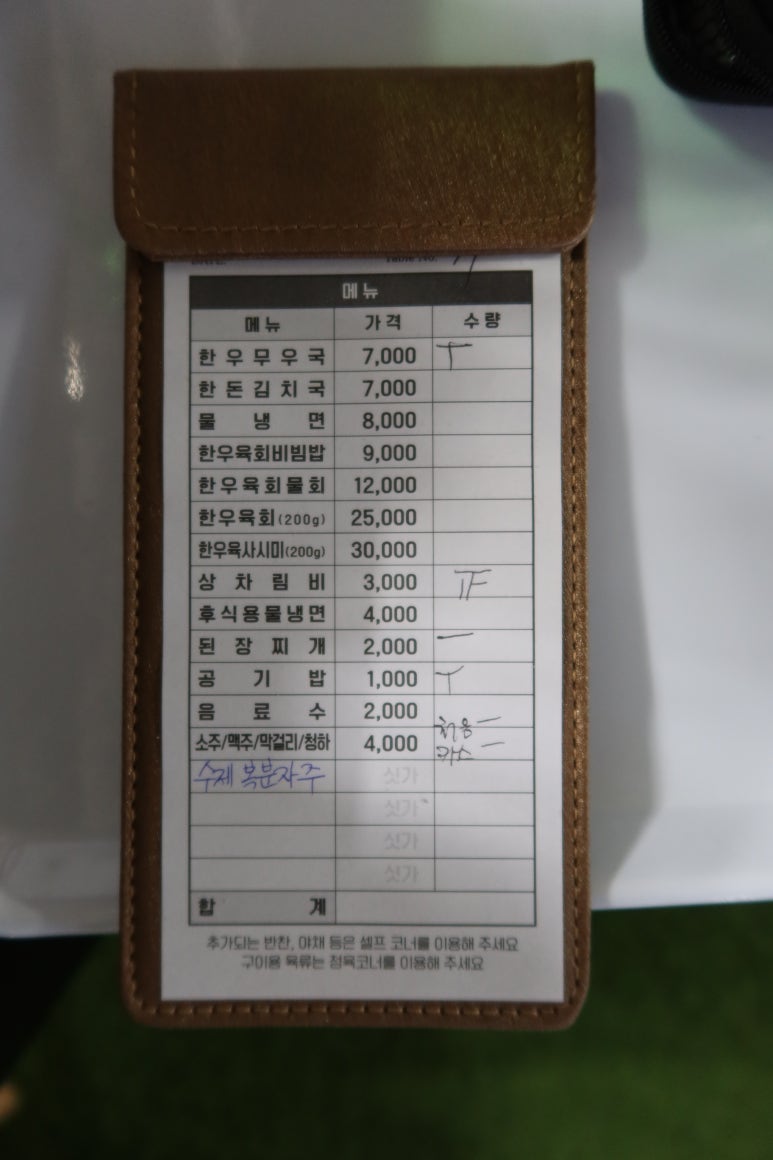 Table No.
메뉴
메뉴 가격 수량
한우무우국 7,000
한돈김치국 7,000
물냉면 8,000
한우육회비빔밥 9,000
한우육회물회 12,000
한우육회(200g) 25,000
한우육사시미(200g) 30,000
상차림비 3,000
후식용물냉면 4,000
된장찌개 2,000 一
공기밥 1,000
음료수 2,000
소주/맥주/막걸리/청하 4,000 처음 一
카스 一
수제 복분자주 싯가
싯가
싯가
싯가
합계
추가되는 반찬, 야채 등은 셀프 코너를 이용해 주세요
구이용 육류는 정육코너를 이용해 주세요